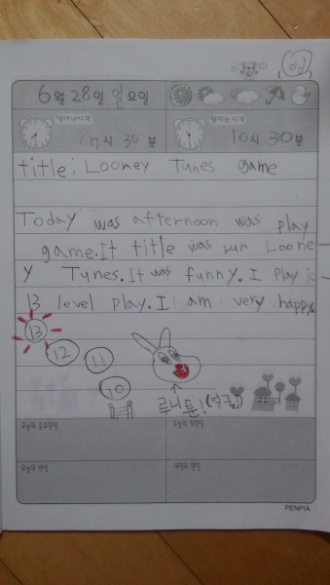 6월 28일 일요일
일어난시각
잠자는시각
7시 30분
10시 30분
title: Looney Tunes game
Today was afternoon was play
game.It title was run Loone
y Tunes.It was funny.I play is
13 level play.I am very happy.
13
12
11
10
루니툰!
오늘의 중요한일
오늘의 착한일
오늘의 반성
내일의 할일
PENPIA